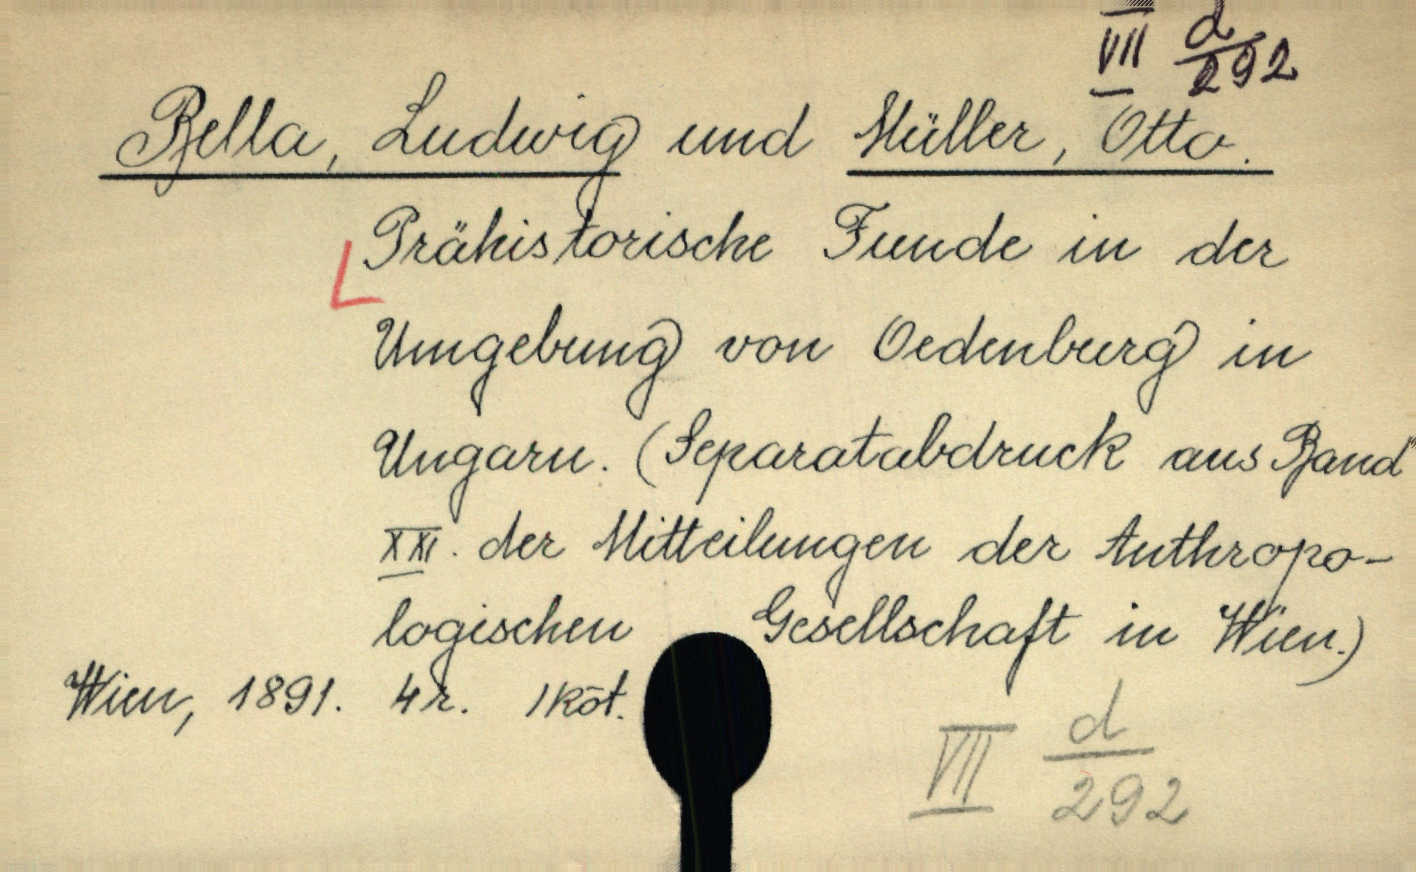 VII d/292
Bella, Ludwig und Müller, Otto.
Prähistorische Funde in der
Umgebung von Oedenburg in
Ungarn. (Separatabdruck aus Band
XXI. der Mitteilungen der Anthropo-
logischen Gesellschaft in Wien.)
Wien, 1891. 4r. 1 köt.
VII d/292